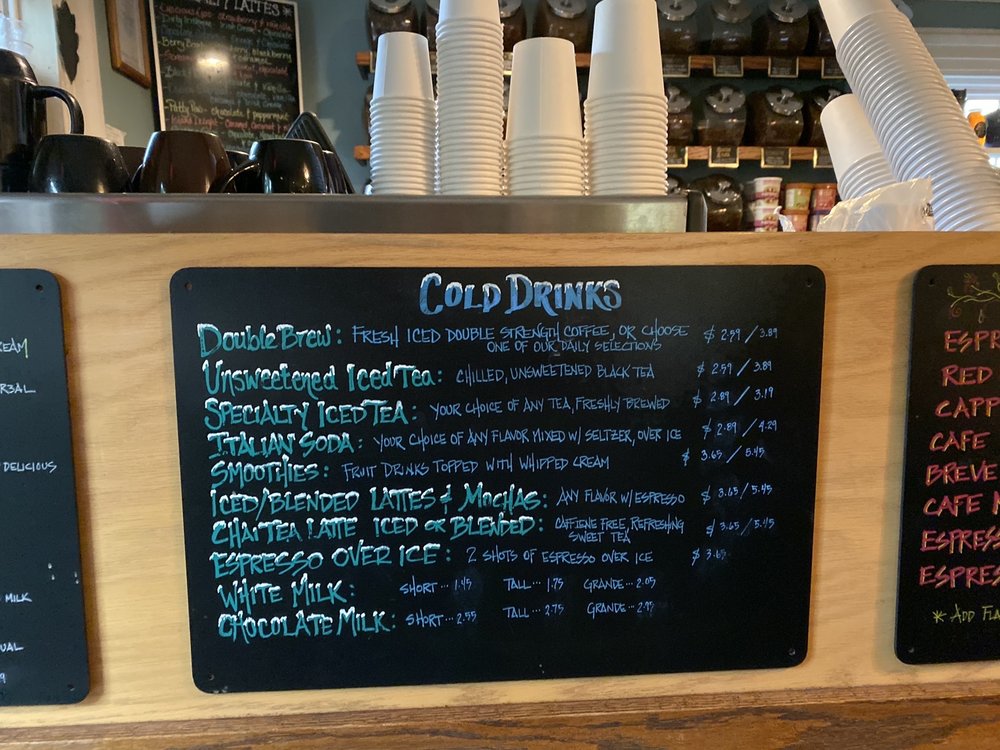 COLD DRINKS
DOUBLE BREW: FRESH ICED DOUBLE STRENGTH COFFEE, OR CHOOSE $ 2.59 / 3.89
ONE OF OUR DAILY SELECTIONS
UNSWEETENED ICED TEA: CHILLED, UNSWEETENED BLACK TEA $ 2.59 / 3.89
SPECIALTY ICED TEA: YOUR CHOICE OF ANY TEA, FRESHLY BREWED $ 2.89 / 3.19
ITALIAN SODA: YOUR CHOICE OF ANY FLAVOR MIXED W/ SELTZER, OVER ICE $ 2.89 / 4.29
SMOOTHIES: FRUIT DRINKS TOPPED WITH WHIPPED CREAM $ 3.65 / 5.45
ICED/BLENDED LATTES & MOCHAS: ANY FLAVOR W/ ESPRESSO $ 3.65 / 5.45
CHAI TEA LATTE ICED OR BLENDED: CAFFIENE FREE, REFRESHING $ 3.65 / 5.45
SWEET TEA
ESPRESSO OVER ICE: 2 SHOTS OF ESPRESSO OVER ICE $ 3.65
WHITE MILK: SHORT... 1.45 TALL... 1.75 GRANDE... 2.05
CHOCOLATE MILK: SHORT... 2.55 TALL... 2.75 GRANDE... 2.95
LATTES *
DELICIOUS
MILK
ESPR
RED
CAPP
CAFE
BREVE
CAFE
ESPRESS
ESPRES
* ADD FLA